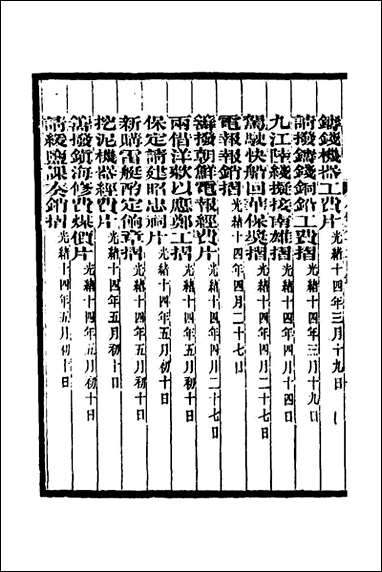 鑄錢機器工費片光緒十四年三月十九日
請撥鑄錢銅鉛工費摺光緒十四年三月十九日
九江陸綫擬接南雄摺光緒十四年四月十四日
駕駛快船回華保獎摺光緒十四年四月二十七日
電報報銷摺光緒十四年四月二十七日
籌撥朝鮮電報經費片光緒十四年四月二十七日
兩借洋款以應鄭工摺光緒十四年五月初十日
保定請建昭忠祠片光緒十四年五月初十日
新購雷艇酌定餉章摺光緒十四年五月初十日
挖泥機器經費片光緒十四年五月初十日
籌撥鎮海修費煤價片光緒十四年五月初十日
請緩鹽課奏銷摺光緒十四年五月初十日